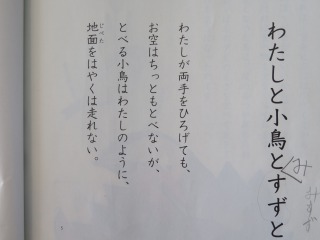 わたしと小鳥とすずと
わたしが両手をひろげても、
お空はちっともとべないが、
とべる小鳥はわたしのように、
地面をはやくは走れない。
じべた
みすず
み